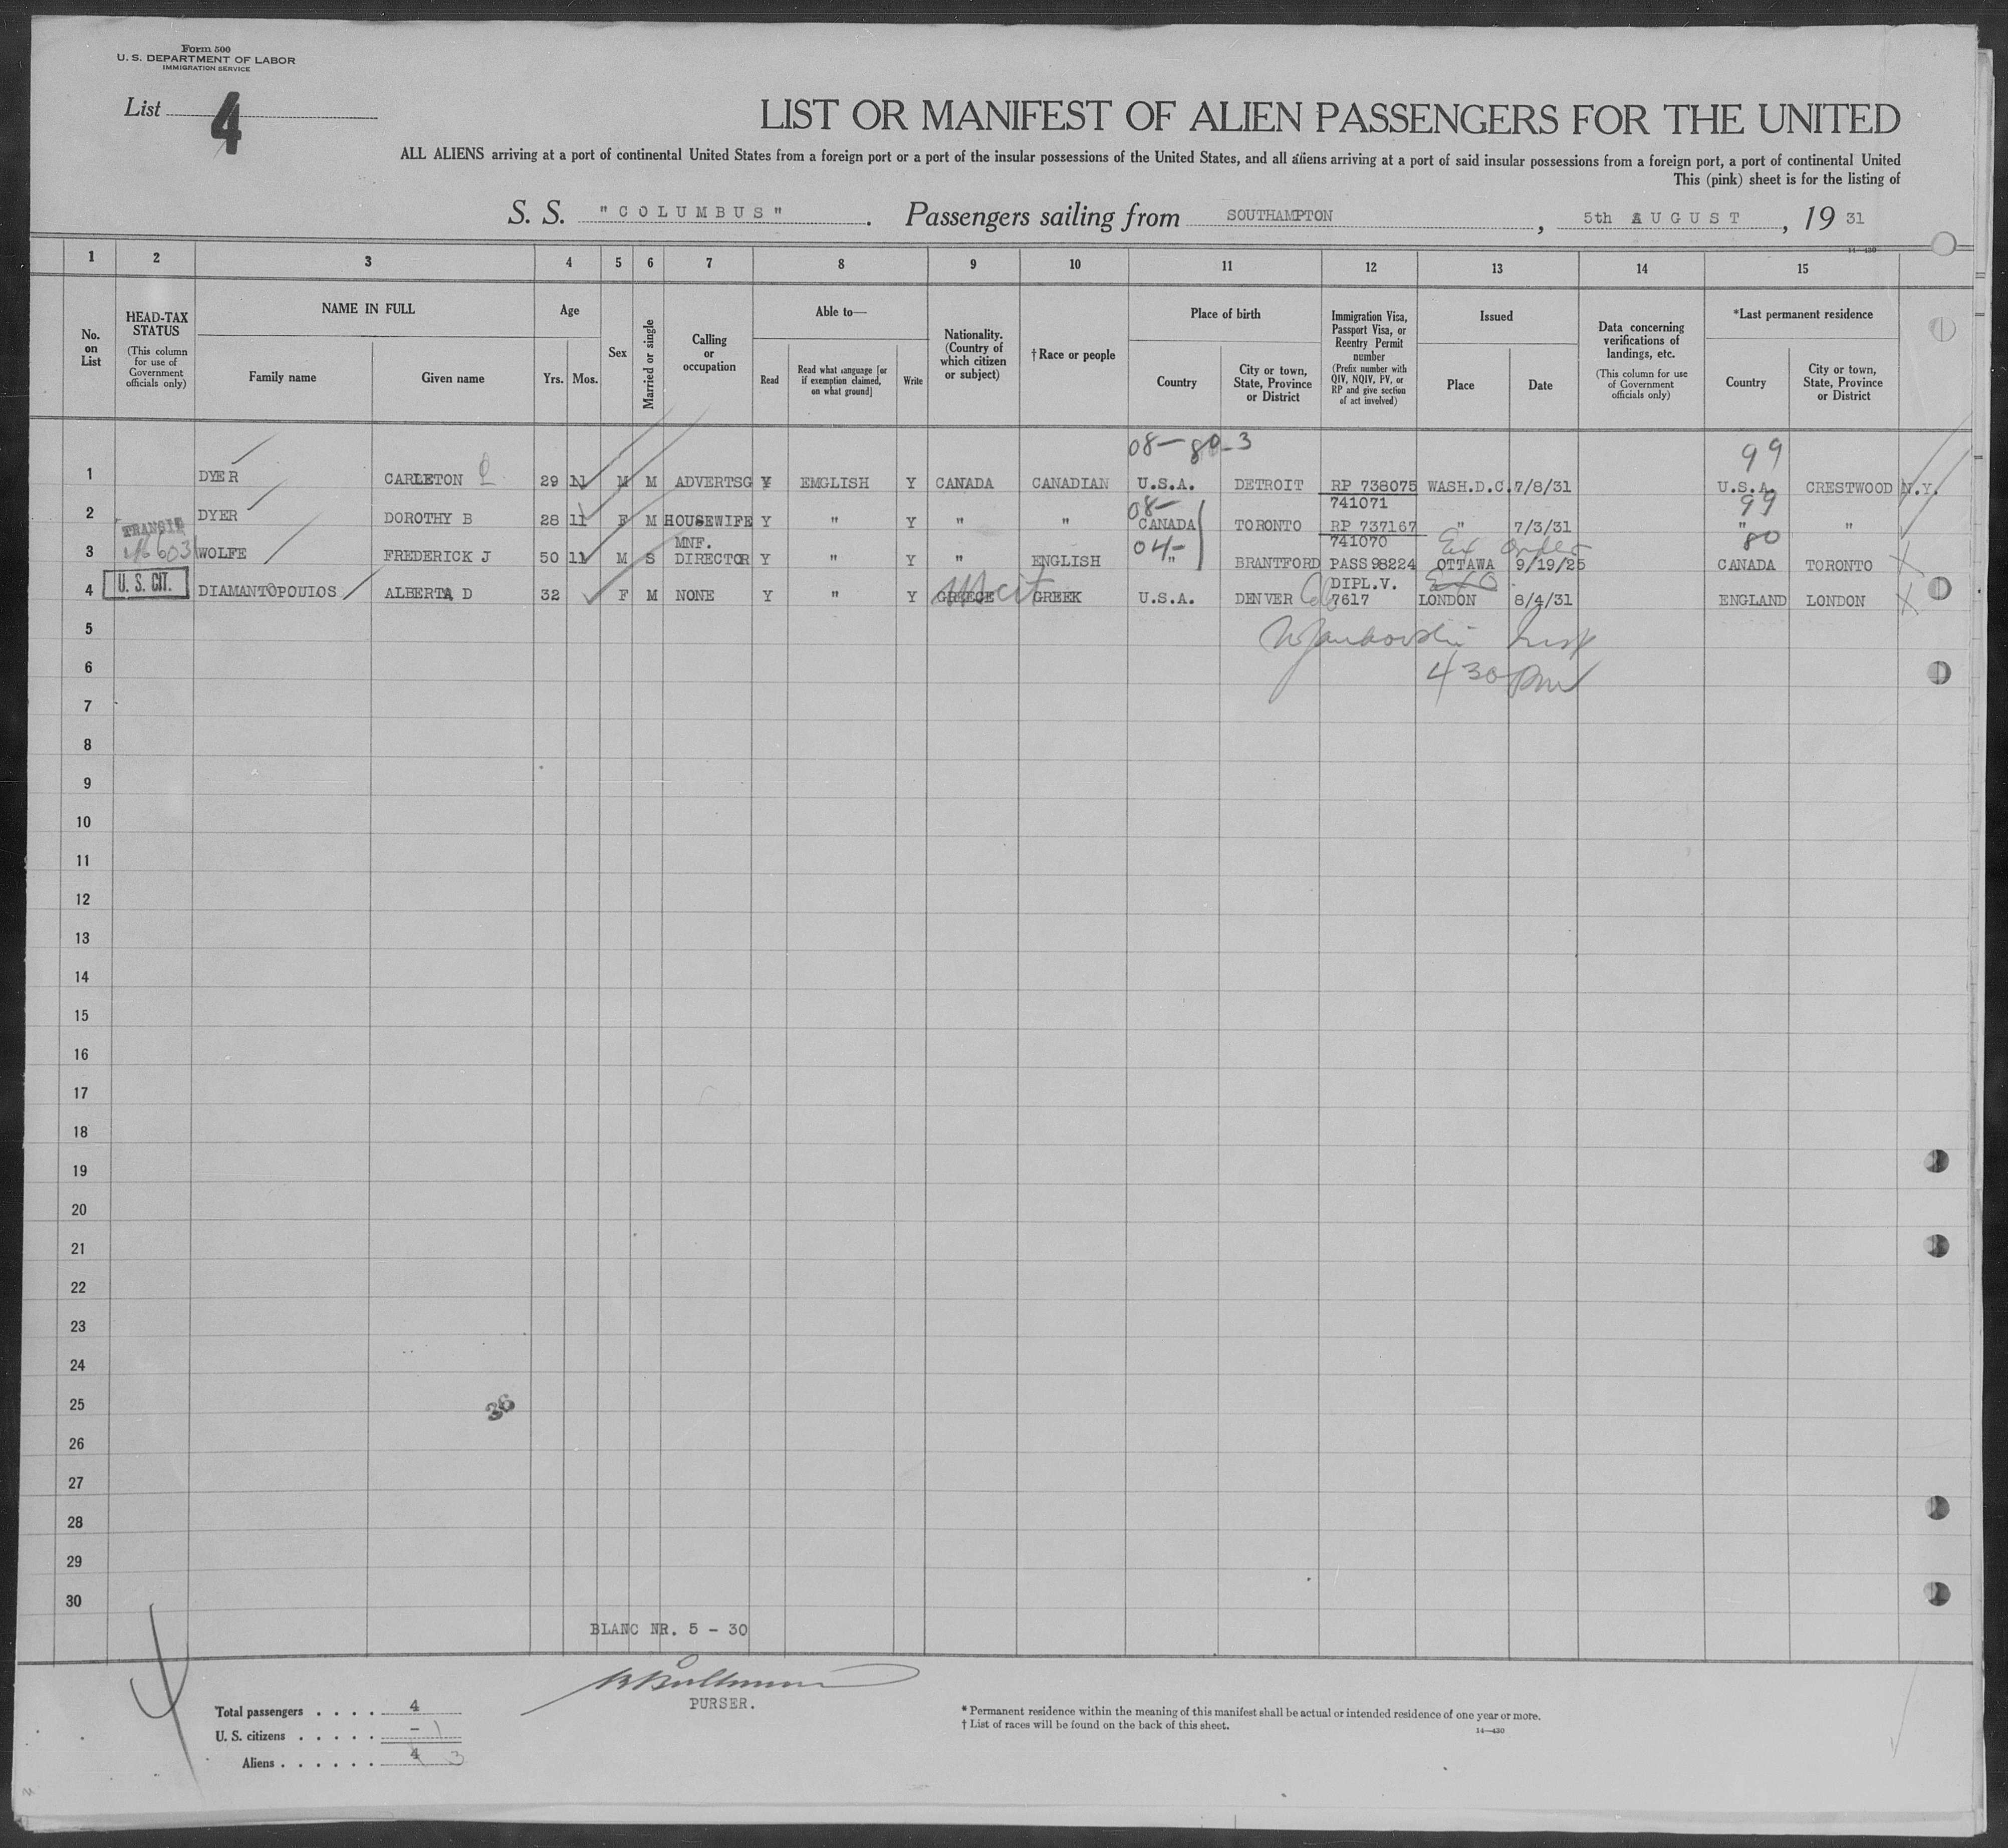 Form 500
U. S. DEPARTMENT OF LABOR
IMMIGRATION SERVICE
List 4
LIST OR MANIFEST OF ALIEN PASSENGERS FOR THE UNITED
ALL ALIENS arriving at a port of continental United States from a foreign port or a port of the insular possessions of the United States, and all aliens arriving at a port of said insular possessions from a foreign port, a port of continental United
This (pink) sheet is for the listing of
S. S. "COLUMBUS" . Passengers sailing from SOUTHAMPTON , 5th AUGUST , 19 31
14—430
1 2 3 4 5 6 7 8 9 10 11 12 13 14 15
No. on List
HEAD-TAX STATUS
(This column for use of Government officials only)
NAME IN FULL
Family name Given name
Age
Yrs. Mos.
Sex
Married or single
Calling or occupation
Able to—
Read
Read what language [or if exemption claimed, on what ground]
Write
Nationality. (Country of which citizen or subject)
†Race or people
Place of birth
Country
City or town, State, Province or District
Immigration Visa, Passport Visa, or Reentry Permit number
(Prefix number with QIV, NQIV, PV, or RP and give section of act involved)
Issued
Place Date
Data concerning verifications of landings, etc.
(This column for use of Government officials only)
*Last permanent residence
Country
City or town, State, Province or District
08— 80-3 99
1 DYER CARLETON 29 11 M M ADVERTSG Y EMGLISH Y CANADA CANADIAN U.S.A. DETROIT RP 738075 WASH.D.C. 7/8/31 U.S.A. CRESTWOOD N.Y.
08— 741071 99
2 DYER DOROTHY B 28 11 F M HOUSEWIFE Y " Y " " CANADA TORONTO RP 737167 " 7/3/31 " "
TRANSIT MNF. 04- 741070 Ex Order 80
3 WOLFE FREDERICK J 50 11 M S DIRECTOR Y " Y " ENGLISH " BRANTFORD PASS 98224 OTTAWA 9/19/25 CANADA TORONTO
U. S. CIT. DIPL.V.
4 DIAMANTOPOULOS ALBERTA D 32 F M NONE Y " Y GREECE GREEK U.S.A. DENVER 7617 LONDON 8/4/31 ENGLAND LONDON
5
6 4 30 pm
7
8
9
10
11
12
13
14
15
16
17
18
19
20
21
22
23
24
25 36
26
27
28
29
30
BLANC NR. 5 - 30
PURSER.
Total passengers . . . . 4
U. S. citizens . . . . . - 1
Aliens . . . . . . 4 3
* Permanent residence within the meaning of this manifest shall be actual or intended residence of one year or more.
† List of races will be found on the back of this sheet.
14—430